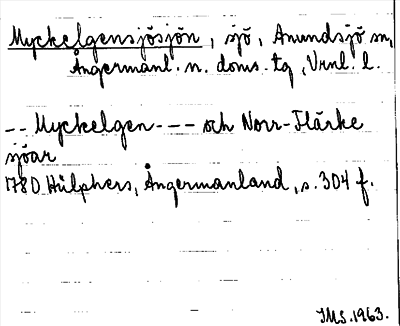 Myckelgensjösjön, sjö, Anundsjö sn,
Ångermanl. n. doms. tg, Vnl. l.
-- Myckelgen --- och Norr-Flärke
sjöar
1780 Hülphers, Ångermanland, s. 304 f.
IMS. 1963.